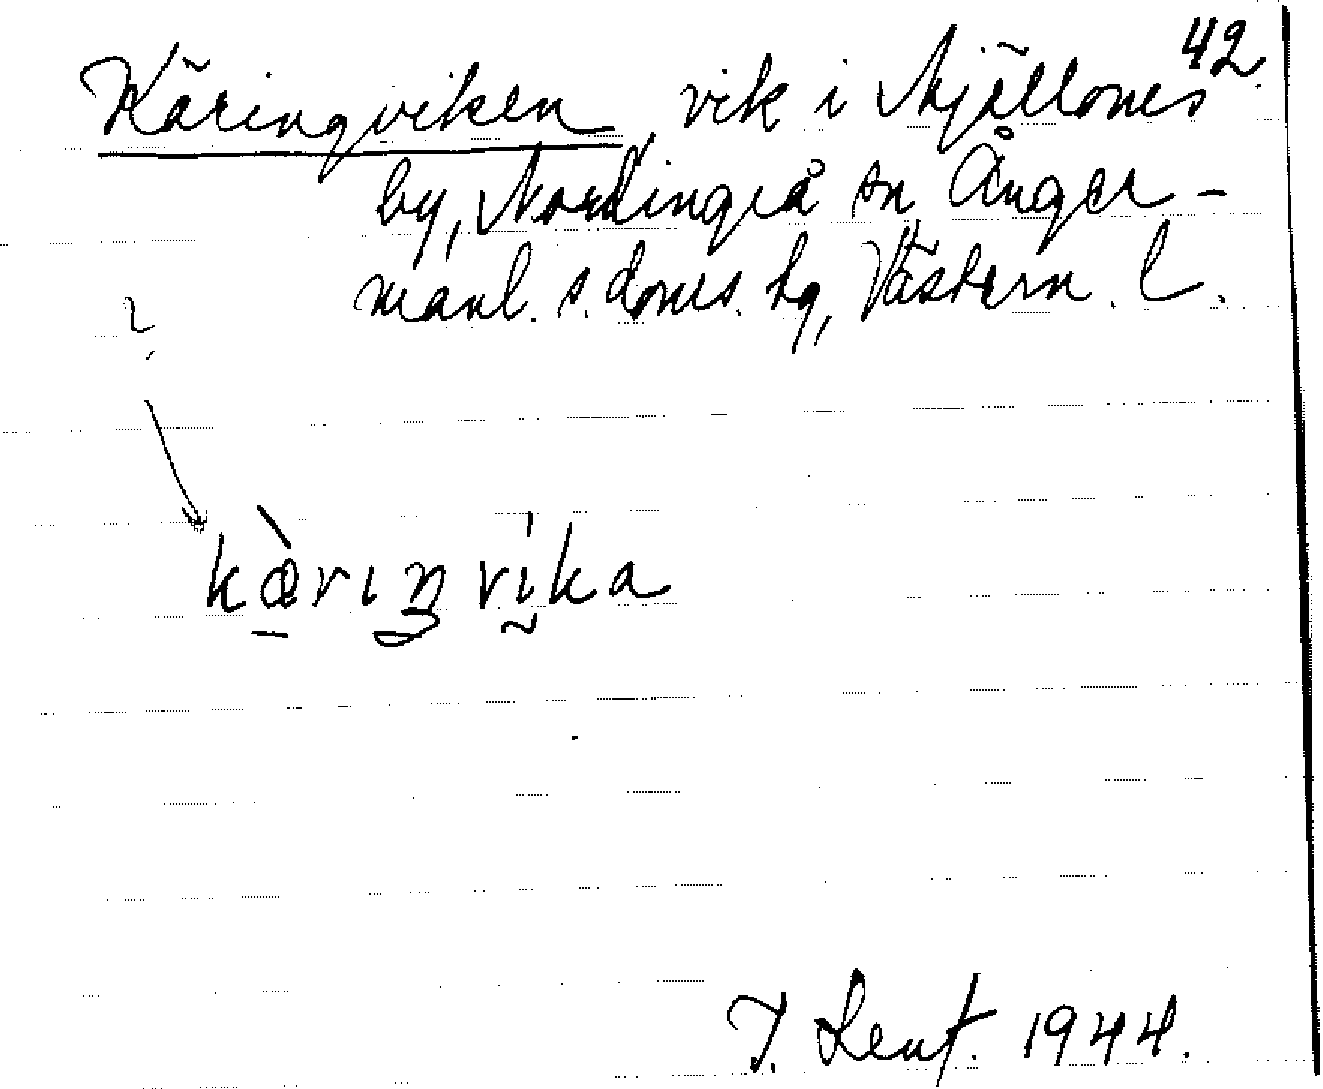 42.
Käringviken, vik i Mjälloms
by, Nordingrå sn, Ånger-
manl. s. doms. hg, Västern. l.
?
kæ̀riŋvika
J. Lenf. 1944.